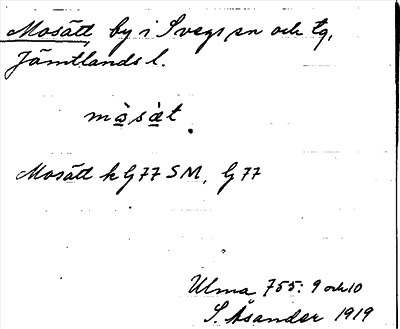 Mosätt, by i Svegs sn och tg,
Jämtlands l.
måsæt.
Mosätt k G 77 SM, G 77
Ulma 755: 9 och 10
S. Åsander 1919